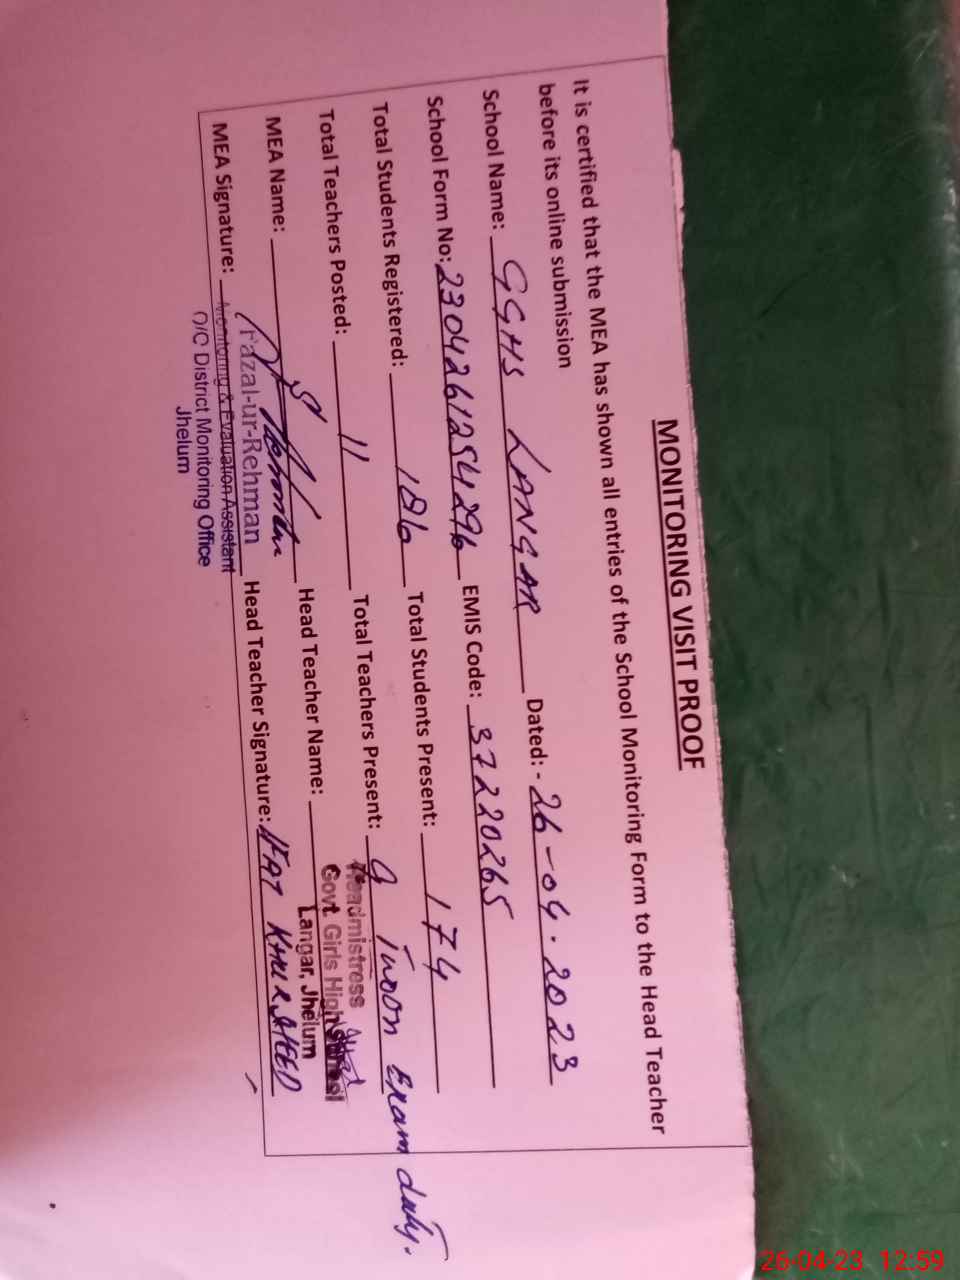 MONITORING VISIT PROOF
It is certified that the MEA has shown all entries of the School Monitoring Form to the Head Teacher
before its online submission
School Name: GGHS LANGAR Dated: - 26-04.2023
School Form No: 2304261254296 EMIS Code: 37220265
Total Students Registered: 186 Total Students Present: 174
Total Teachers Posted: 11 Total Teachers Present: 9 Exam duty.
MEA Name: Head Teacher Name:
Headmistress
Govt. Girls High School
Langar, Jhelum
MEA Signature: Head Teacher Signature: KHURSHEED
Fazal-ur-Rehman
Monitoring & Evaluation Assistant
O/C District Monitoring Office
Jhelum
26-04-23 12:59